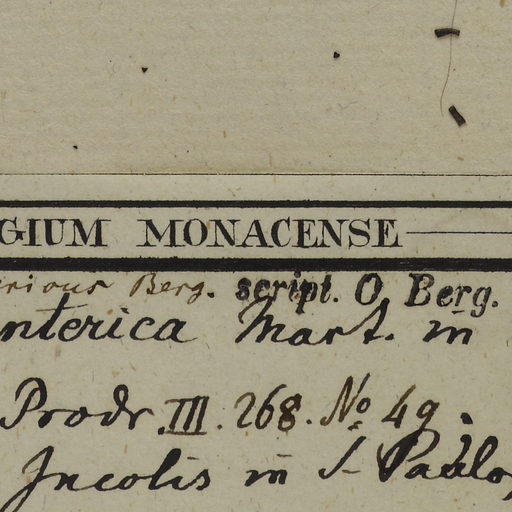 GIUM MONACENSE
rious Berg. script. O. Berg.
nterica Mart. in
Prodr. III. 268. No 49.
Incolis in S. Paulo,